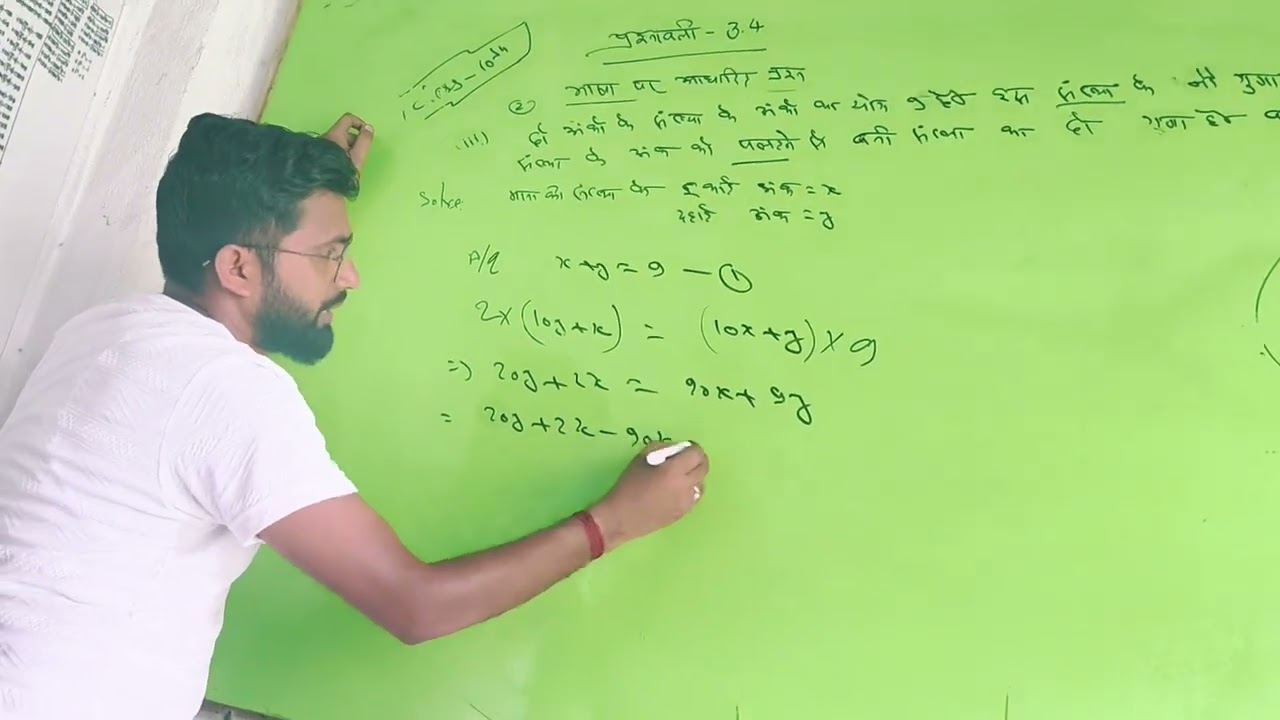 प्रश्नावली - 3.4
Class - 10th
भाषा पर आधारित प्रश्न
(2)
(iii) दो अंकों के संख्या के अंकों का योग 9 है। इस संख्या के नौ गुणा
संख्या के अंक को पलटने से बनी संख्या का दो गुणा है।
Solve: माना की संख्या के इकाई अंक = x
दहाई अंक = y
A/q x+y = 9 — ①
2×(10y+x) = (10x+y)×9
=> 20y+2x = 90x+9y
= 20y+2x-90x